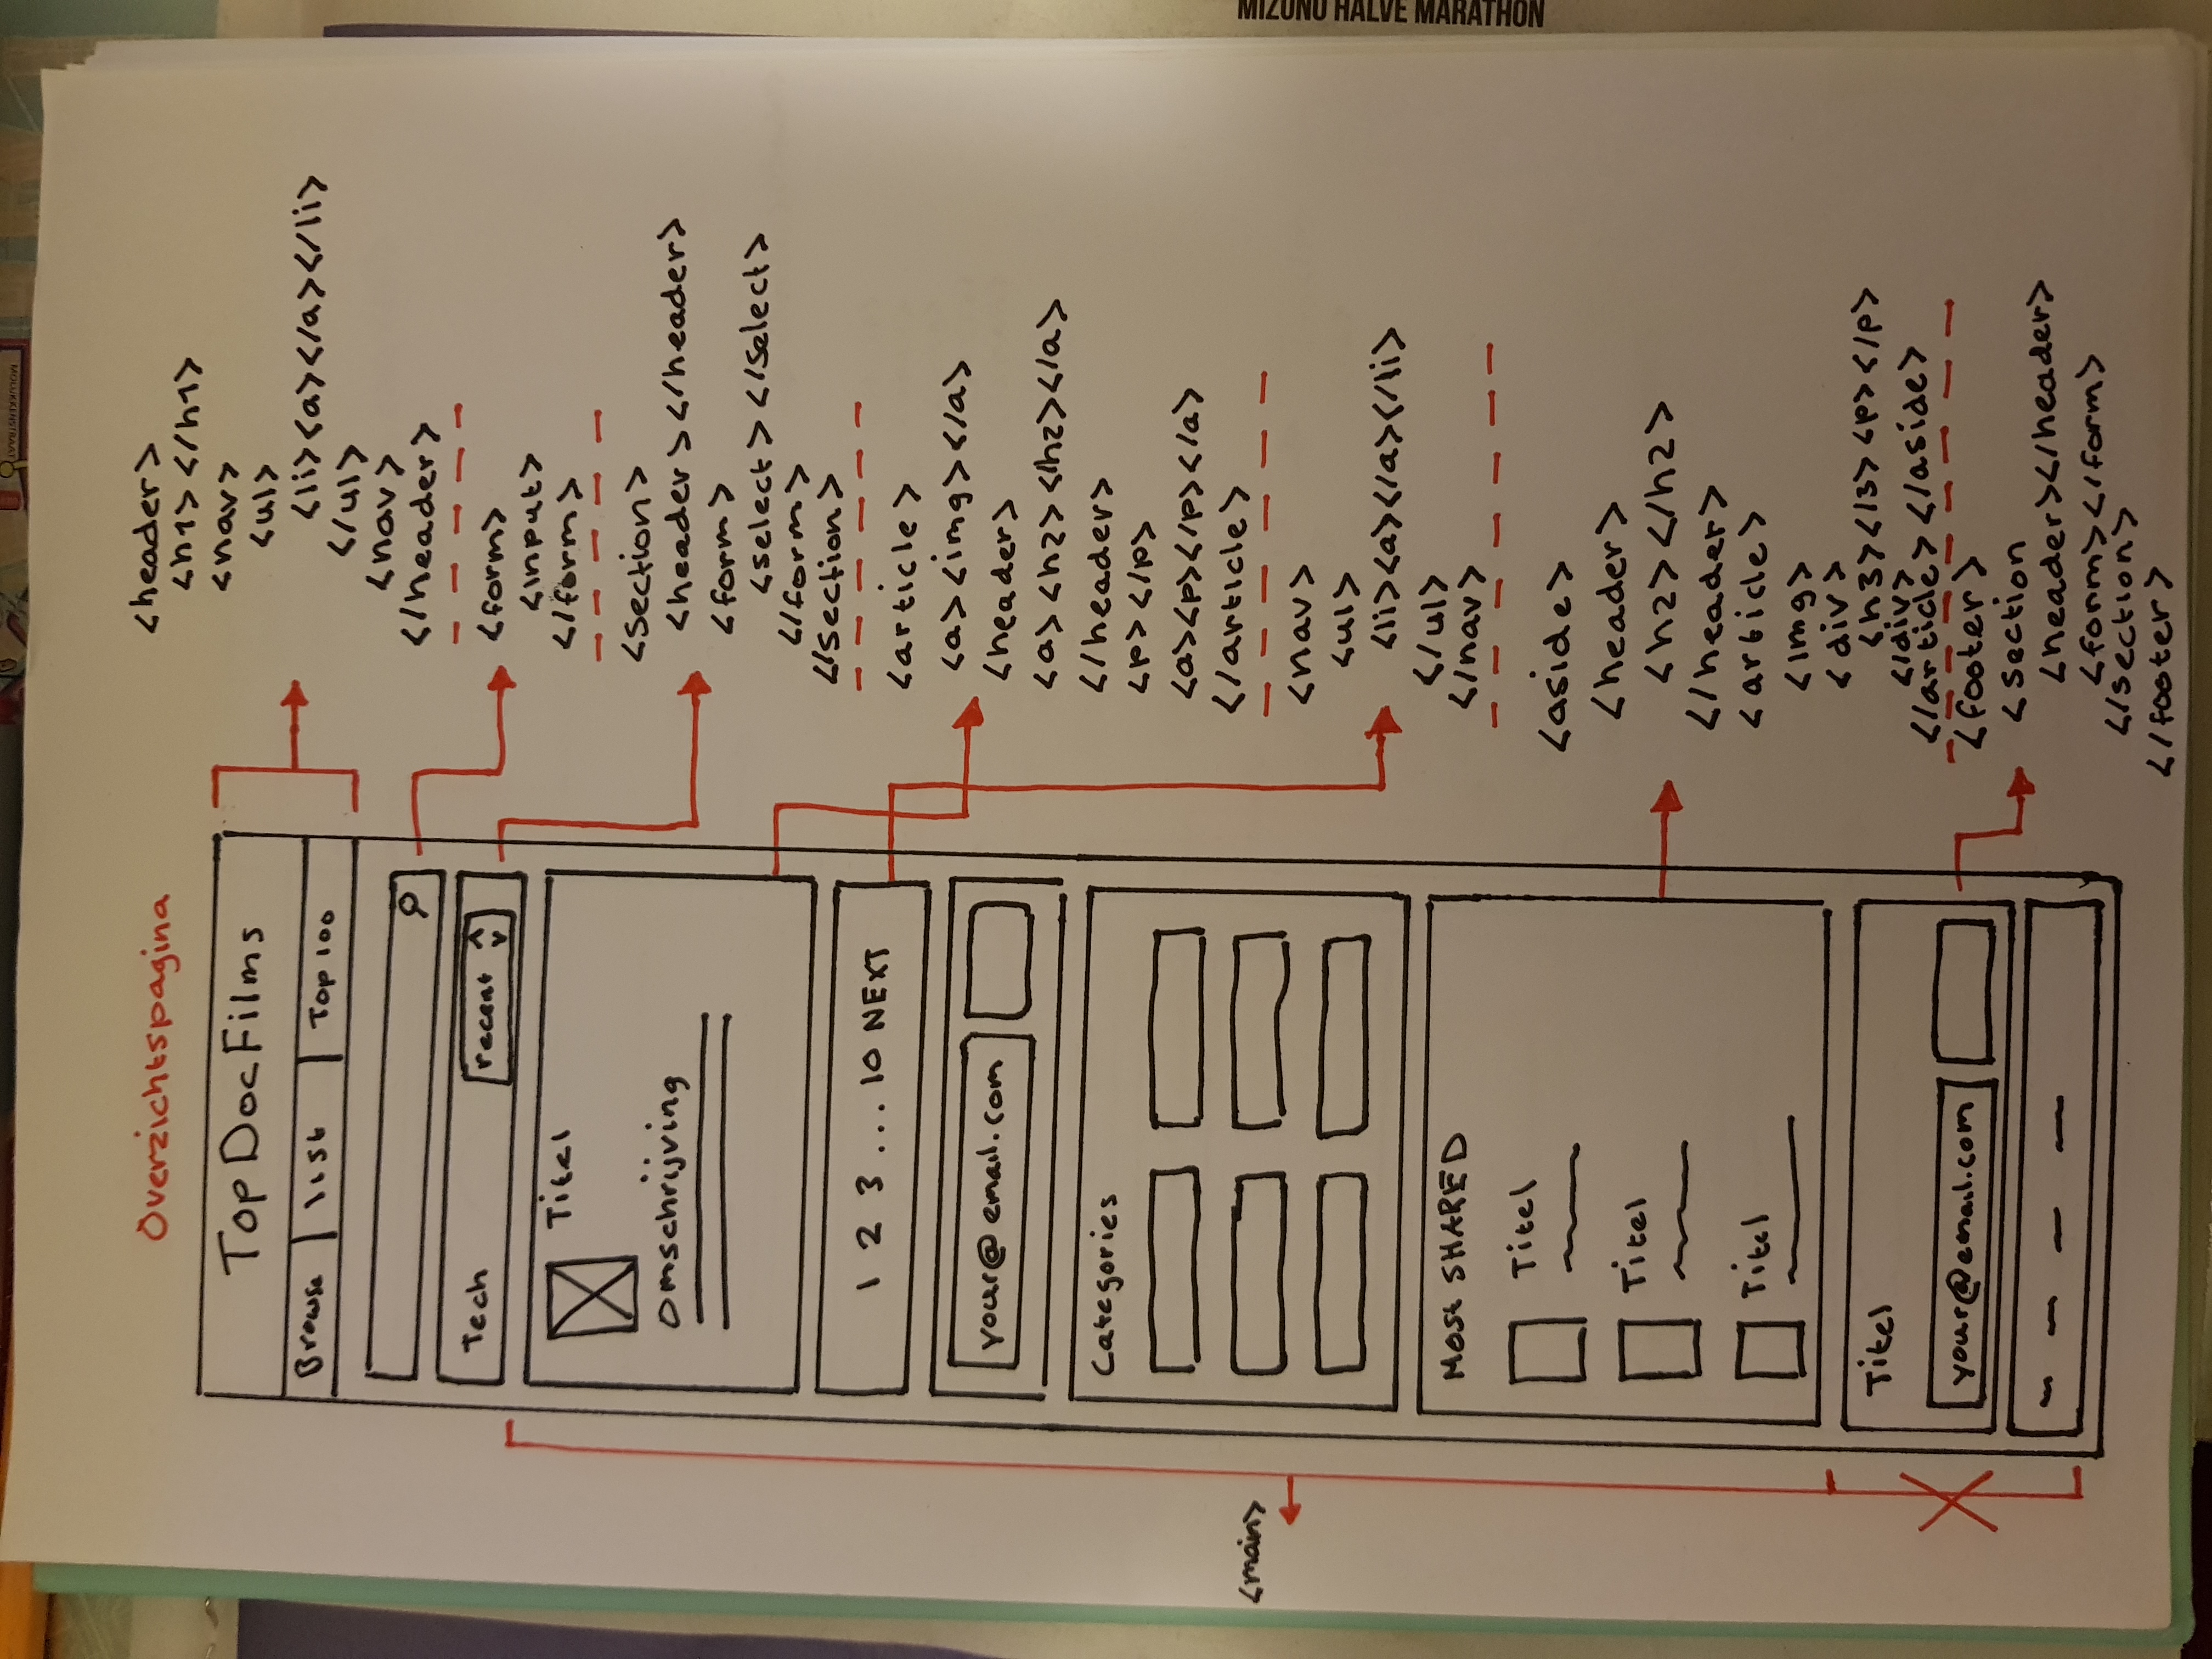 MOUJKKENSTRAAT
Overzichtspagina
TopDocFilms
Browse list Top 100
Tech recent
Titel
Omschrijving
1 2 3 ... 10 NEXT
your@email.com
Categories
<main>
Most SHARED
Titel
Titel
Titel
Titel
your@email.com
<header>
<h1></h1>
<nav>
<ul>
<li><a></a></li>
</ul>
<nav>
</header>
<form>
<input>
</form>
<section>
<header></header>
<form>
<select></select>
</form>
</section>
<article>
<a><img></a>
<header>
<a><h2></h2></a>
</header>
<p></p>
<a><p></p></a>
</article>
<nav>
<ul>
<li><a></a></li>
</ul>
</nav>
<aside>
<header>
<h2></h2>
</header>
<article>
<img>
<div>
<h3></3><p></p>
</div>
</article></aside>
<footer>
<section
<header></header>
<form></form>
</section>
</footer>
MIZUNO HALVE MARATHON